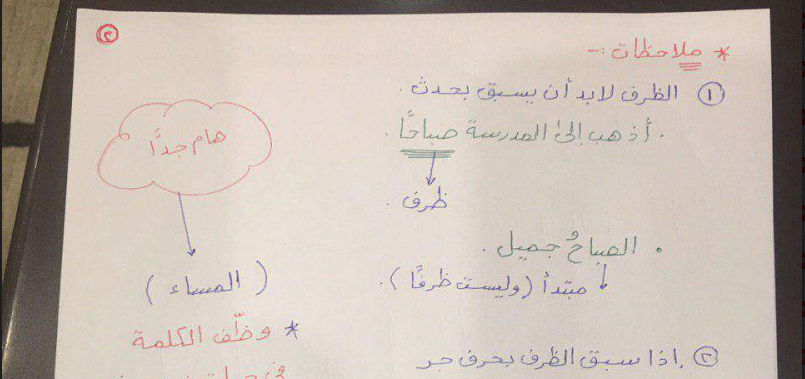 ٣
* ملاحظات :-
١ الظرف لابد أن يسبق بحدث .
. أذهب إلى المدرسة صباحًا .
ظرف .
. الصباحُ جميل .
مبتدأ (وليست ظرفًا) .
٢ إذا سبق الظرف بحرف جر
هام جدًّا
( المساء )
* وظّف الكلمة
في